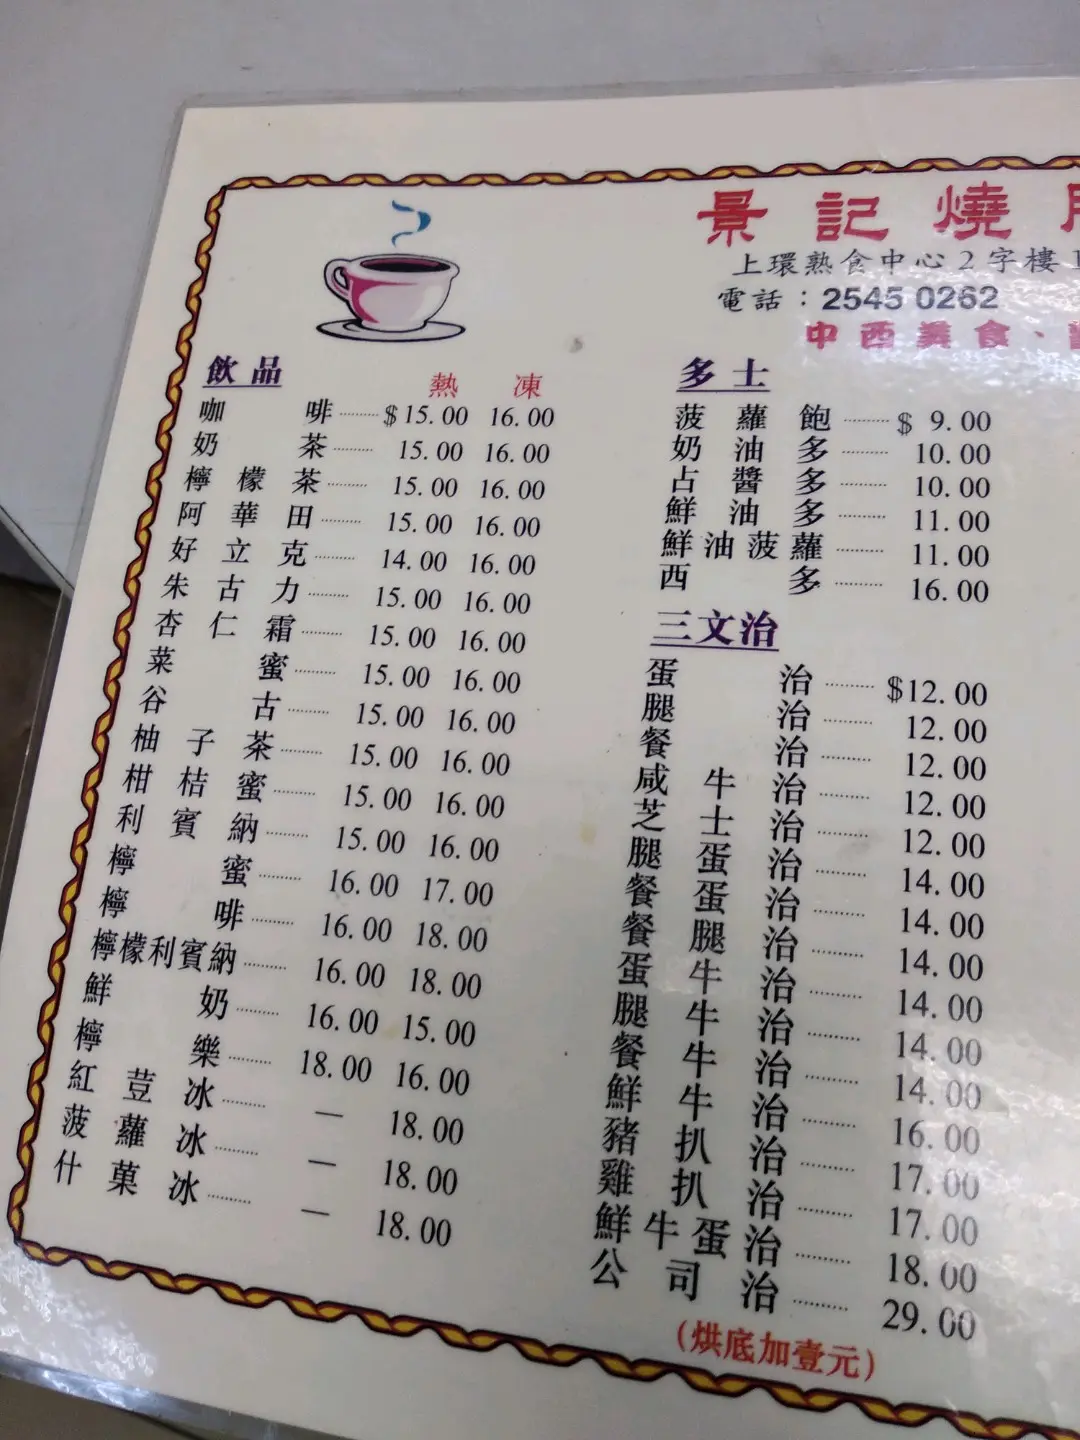 景記燒
上環熟食中心2字樓
電話：2545 0262
中西美食、
飲品 熱 凍
咖啡 $15.00 16.00
奶茶 15.00 16.00
檸檬茶 15.00 16.00
阿華田 15.00 16.00
好立克 14.00 16.00
朱古力 15.00 16.00
杏仁霜 15.00 16.00
菜蜜 15.00 16.00
谷古 15.00 16.00
柚子茶 15.00 16.00
柑桔蜜 15.00 16.00
利賓納 15.00 16.00
檸蜜 16.00 17.00
檸啡 16.00 18.00
檸檬利賓納 16.00 18.00
鮮奶 16.00 15.00
檸樂 18.00 16.00
紅荳冰 — 18.00
菠蘿冰 — 18.00
什菓冰 — 18.00
多士
菠蘿飽 $ 9.00
奶油多 10.00
占醬多 10.00
鮮油多 11.00
鮮油菠蘿 11.00
西多 16.00
三文治
蛋治 $12.00
腿治 12.00
餐治 12.00
咸牛治 12.00
芝士治 12.00
腿蛋治 14.00
餐蛋治 14.00
餐腿治 14.00
蛋牛治 14.00
腿牛治 14.00
餐牛治 14.00
鮮牛治 16.00
豬扒治 17.00
雞扒治 17.00
鮮牛蛋治 18.00
公司治 29.00
(烘底加壹元)